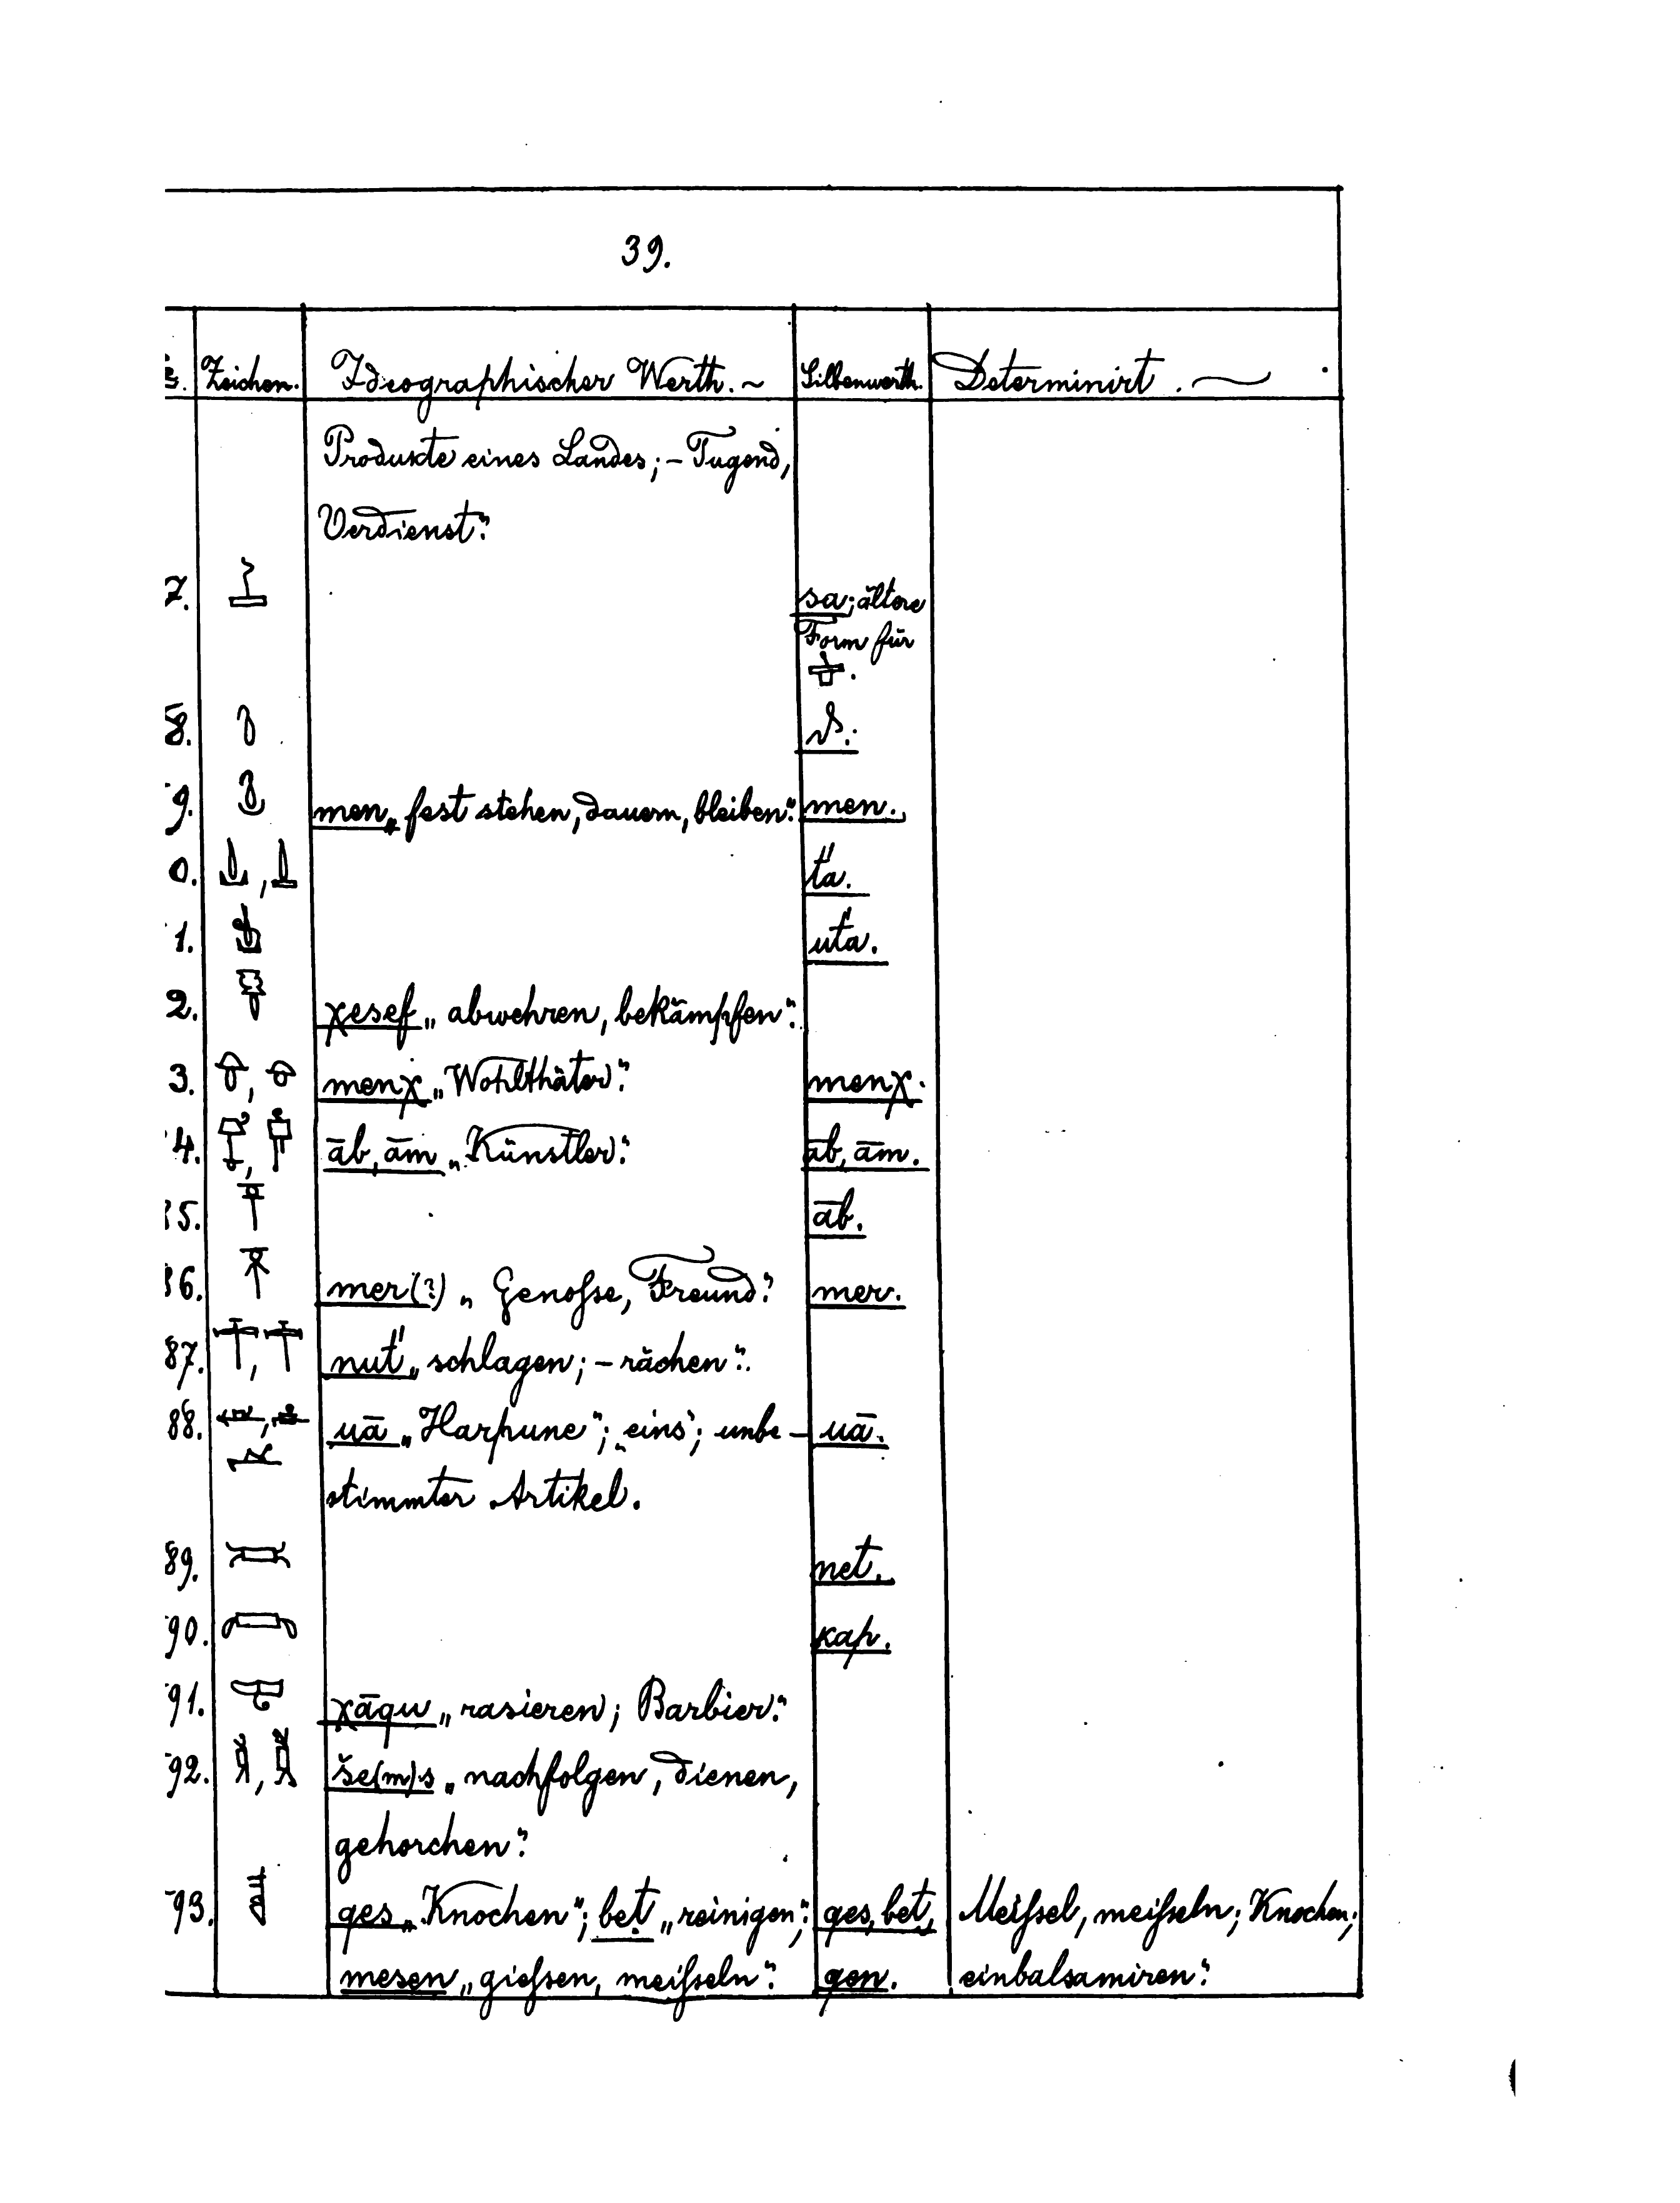 39.
Zeichen. Ideographischer Werth. Silbenwerth. Determinirt.
Produkte eines Landes; – Tugend,
Verdienst."
7. sa; ältere
Form für
8. s.
9. men „fest stehen, dauern, bleiben." men.
0. , ťa.
1. uťa.
2. χesef „abwehren, bekämpfen."
3. , menχ „Wohlthäter." menχ.
4. , āb, ām „Künstler." āb, ām.
5. āb.
86. mer(?) „Genoſse, Freund." mer.
87. , nuť „schlagen; – rächen".
88. , uā „Harpune"; „eins"; unbe- uā.
stimmter Artikel.
89. net.
90. kap.
91. χāqu „rasieren; Barbier."
92. , še(m)s „nachfolgen, dienen,
gehorchen."
93. qes „Knochen"; beṭ „reinigen"; qes, beṭ, Meiſsel, meiſseln; Knochen;
mesen „gieſsen, meiſseln." qen. einbalsamiren."